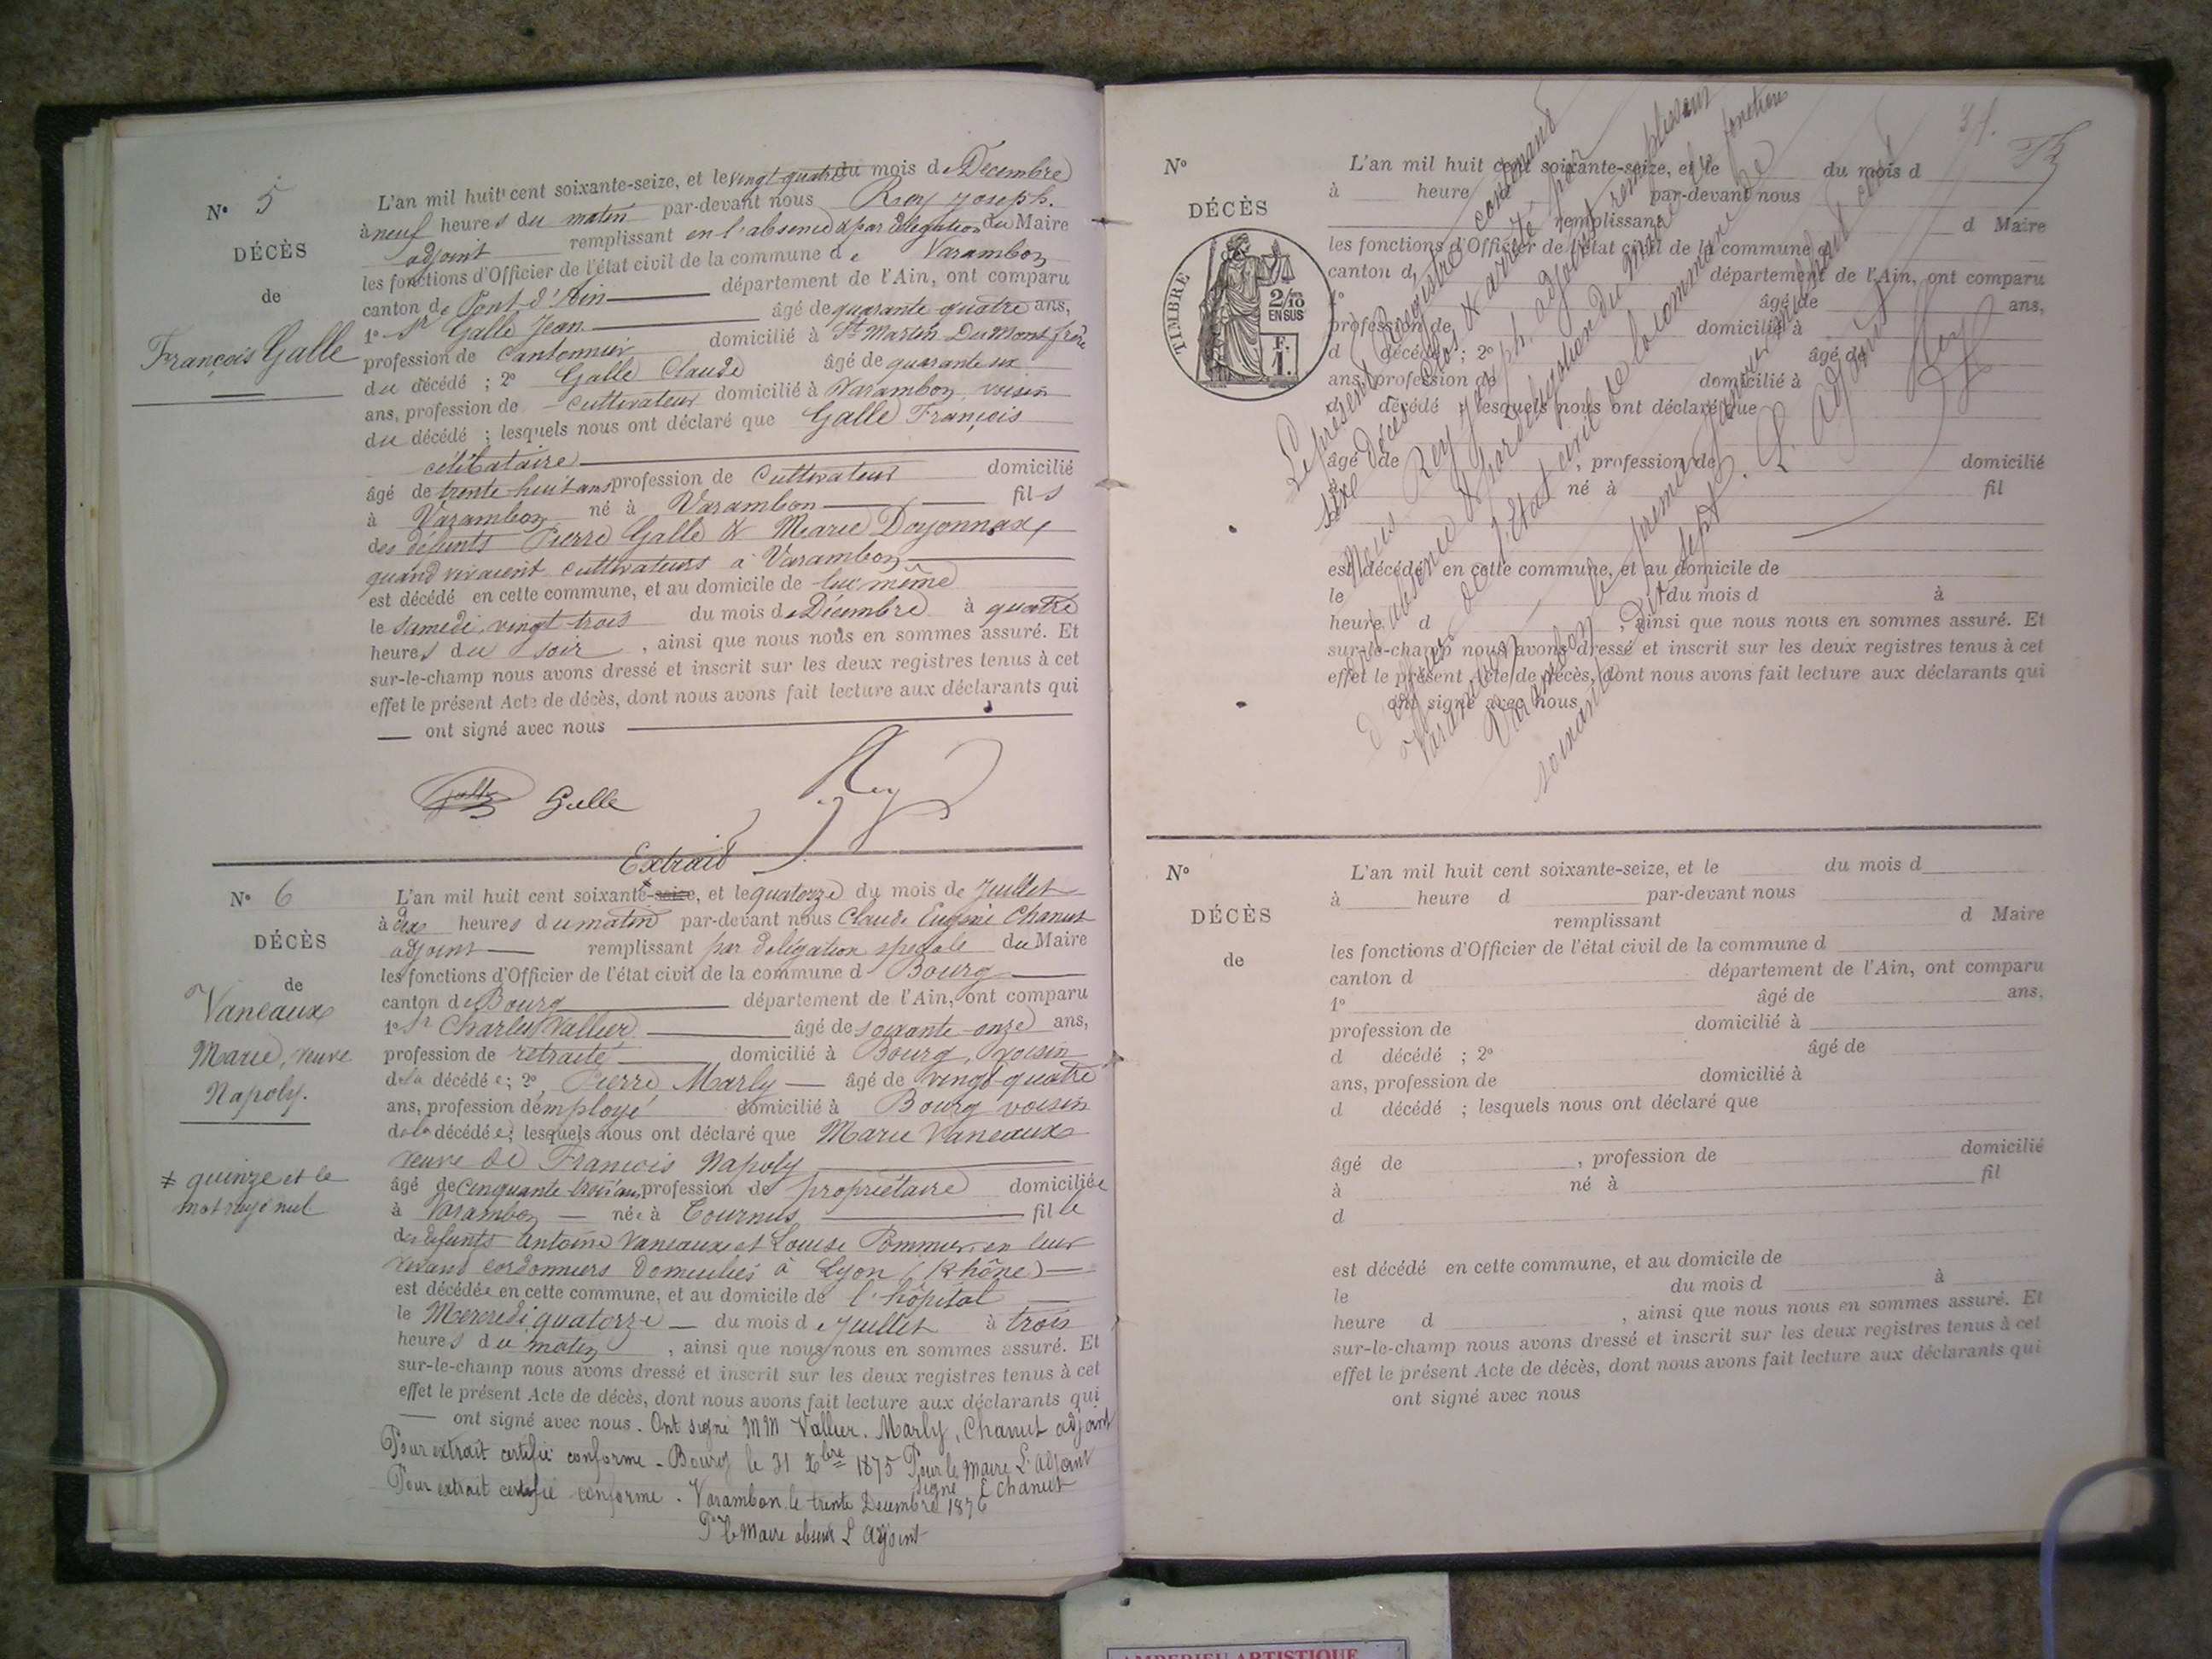 N° 5
DÉCÈS
de
François Galle
L'an mil huit cent soixante-seize, et le vingt quatre du mois de Décembre
à neuf heures du matin par-devant nous Rey Joseph.
adjoint remplissant en l'absence & par délégation du Maire
les fonctions d'Officier de l'état civil de la commune de Varambon
canton de Pont-d'Ain département de l'Ain, ont comparu
1° Sr Galle Jean âgé de quarante-quatre ans,
profession de Cantonnier domicilié à St Martin Du Mont frère
du décédé ; 2° Galle Claude âgé de quarante six
ans, profession de cultivateur domicilié à Varambon, voisin
du décédé ; lesquels nous ont déclaré que Galle François
célibataire
âgé de trente huit ans profession de Cultivateur domicilié
à Varambon né à Varambon fils
des défunts Pierre Galle & Marie Doyonnax,
quand vivaient cultivateurs à Varambon
est décédé en cette commune, et au domicile de lui même
le samedi, vingt trois du mois de Décembre à quatre
heures du soir , ainsi que nous nous en sommes assuré. Et
sur-le-champ nous avons dressé et inscrit sur les deux registres tenus à cet
effet le présent Acte de décès, dont nous avons fait lecture aux déclarants qui
ont signé avec nous
Galle Galle Rey
Extrait
N° 6
DÉCÈS
de
Vaneaux
Marie, veuve
Napoly.
≠ quinze et le
mot rayé nul
L'an mil huit cent soixante-seize, et le quatorze du mois de Juillet
à dix heures du matin par-devant nous Claude Eugène Chanut
adjoint remplissant par délégation spéciale du Maire
les fonctions d'Officier de l'état civil de la commune d Bourg
canton de Bourg département de l'Ain, ont comparu
1° Sr Charles Vallier âgé de soixante-onze ans,
profession de retraité domicilié à Bourg, voisin
de la décédée ; 2° Pierre Marly âgé de vingt-quatre
ans, profession d'employé domicilié à Bourg voisin
de la décédée ; lesquels nous ont déclaré que Marie Vaneaux
veuve de François Napoly
âgé de cinquante trois ans, profession de propriétaire domiciliée
à Varambon née à Tournus fille
des défunts Antoine Vaneaux et Louise Pommier, en leur
vivant cordonniers domiciliés à Lyon (Rhône)
est décédée en cette commune, et au domicile de l'hôpital
le Mercredi quatorze du mois de Juillet à trois
heures du matin , ainsi que nous nous en sommes assuré. Et
sur-le-champ nous avons dressé et inscrit sur les deux registres tenus à cet
effet le présent Acte de décès, dont nous avons fait lecture aux déclarants qui
ont signé avec nous. Ont signé MM Vallier, Marly, Chanut adjoint
Pour extrait certifié conforme - Bourg le 31 Xbre 1875 Pour le Maire L'adjoint
signé E Chanut
Pour extrait certifié conforme. Varambon le trente Décembre 1876
Pr le Maire absent L'adjoint
31.
N°
DÉCÈS
TIMBRE
2/10 EN SUS
F. 1.
L'an mil huit cent soixante-seize, et le du mois d
à heure par-devant nous
remplissant d Maire
les fonctions d'Officier de l'état civil de la commune
canton d département de l'Ain, ont comparu
1° âgé de ans,
profession de domicilié à
d décédé ; 2° âgé de
ans, profession de domicilié à
d décédé ; lesquels nous ont déclaré que
âgé de , profession de domicilié
né à fil
est décédé en cette commune, et au domicile de
le du mois d à
heure d , ainsi que nous nous en sommes assuré. Et
sur-le-champ nous avons dressé et inscrit sur les deux registres tenus à cet
effet le présent Acte de décès, dont nous avons fait lecture aux déclarants qui
ont signé avec nous
Le présent Registre contenant
six décès clos & arrêté par
Nous Rey Joseph, adjoint remplissant
en absence & par délégation du Maire les fonctions
d'officier de l'État civil de la commune de
Varambon
Varambon le premier Janvier mil huit cent
soixante dix sept. L'adjoint
Rey
N°
DÉCÈS
de
L'an mil huit cent soixante-seize, et le du mois d
à heure d par-devant nous
remplissant d Maire
les fonctions d'Officier de l'état civil de la commune d
canton d département de l'Ain, ont comparu
1° âgé de ans,
profession de domicilié à
d décédé ; 2° âgé de
ans, profession de domicilié à
d décédé ; lesquels nous ont déclaré que
âgé de , profession de domicilié
à né à fil
d
est décédé en cette commune, et au domicile de
le du mois d à
heure d , ainsi que nous nous en sommes assuré. Et
sur-le-champ nous avons dressé et inscrit sur les deux registres tenus à cet
effet le présent Acte de décès, dont nous avons fait lecture aux déclarants qui
ont signé avec nous
AMBERIEU ARTISTIQUE